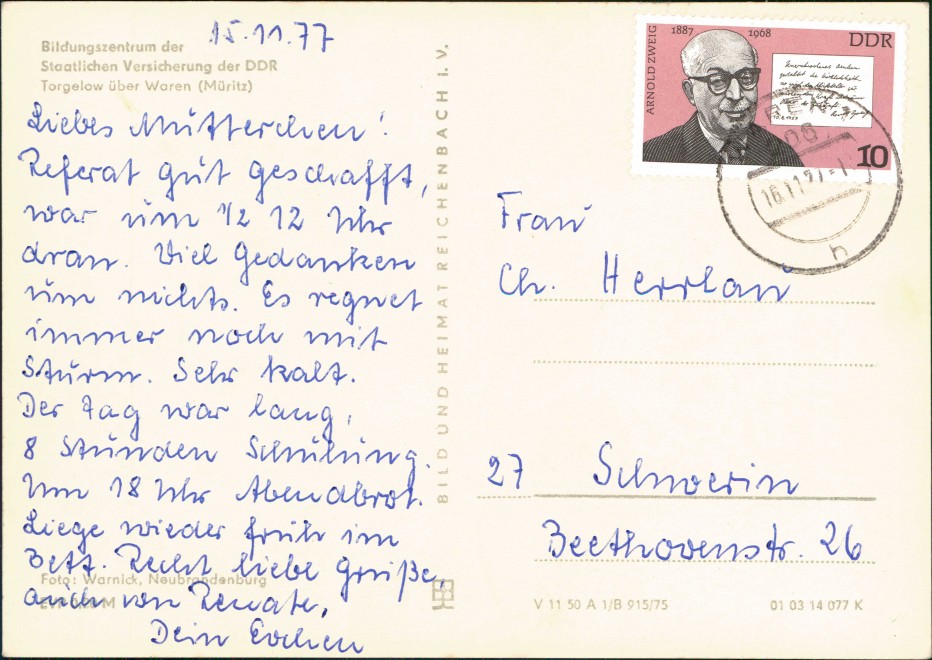 15.11.77
Bildungszentrum der
Staatlichen Versicherung der DDR
Torgelow über Waren (Müritz)
Liebes Mütterchen!
Referat gut geschafft,
war um 1/2 12 Uhr
dran. Viel Gedanken
um nichts. Es regnet
immer noch mit
Sturm. Sehr kalt.
Der Tag war lang,
8 Stunden Schulung.
Um 18 Uhr Abendbrot.
Liege wieder früh im
Bett. Recht liebe Grüße,
auch von Renate,
Dein
Foto: Warnick, Neubrandenburg
BILD UND HEIMAT REICHENBACH i. V.
ARNOLD ZWEIG
1887 1968
DDR
10
16.11.77
h
Frau
Ch. Herrlau
27 Schwerin
Beethovenstr. 26
V 11 50 A 1/B 915/75
01 03 14 077 K